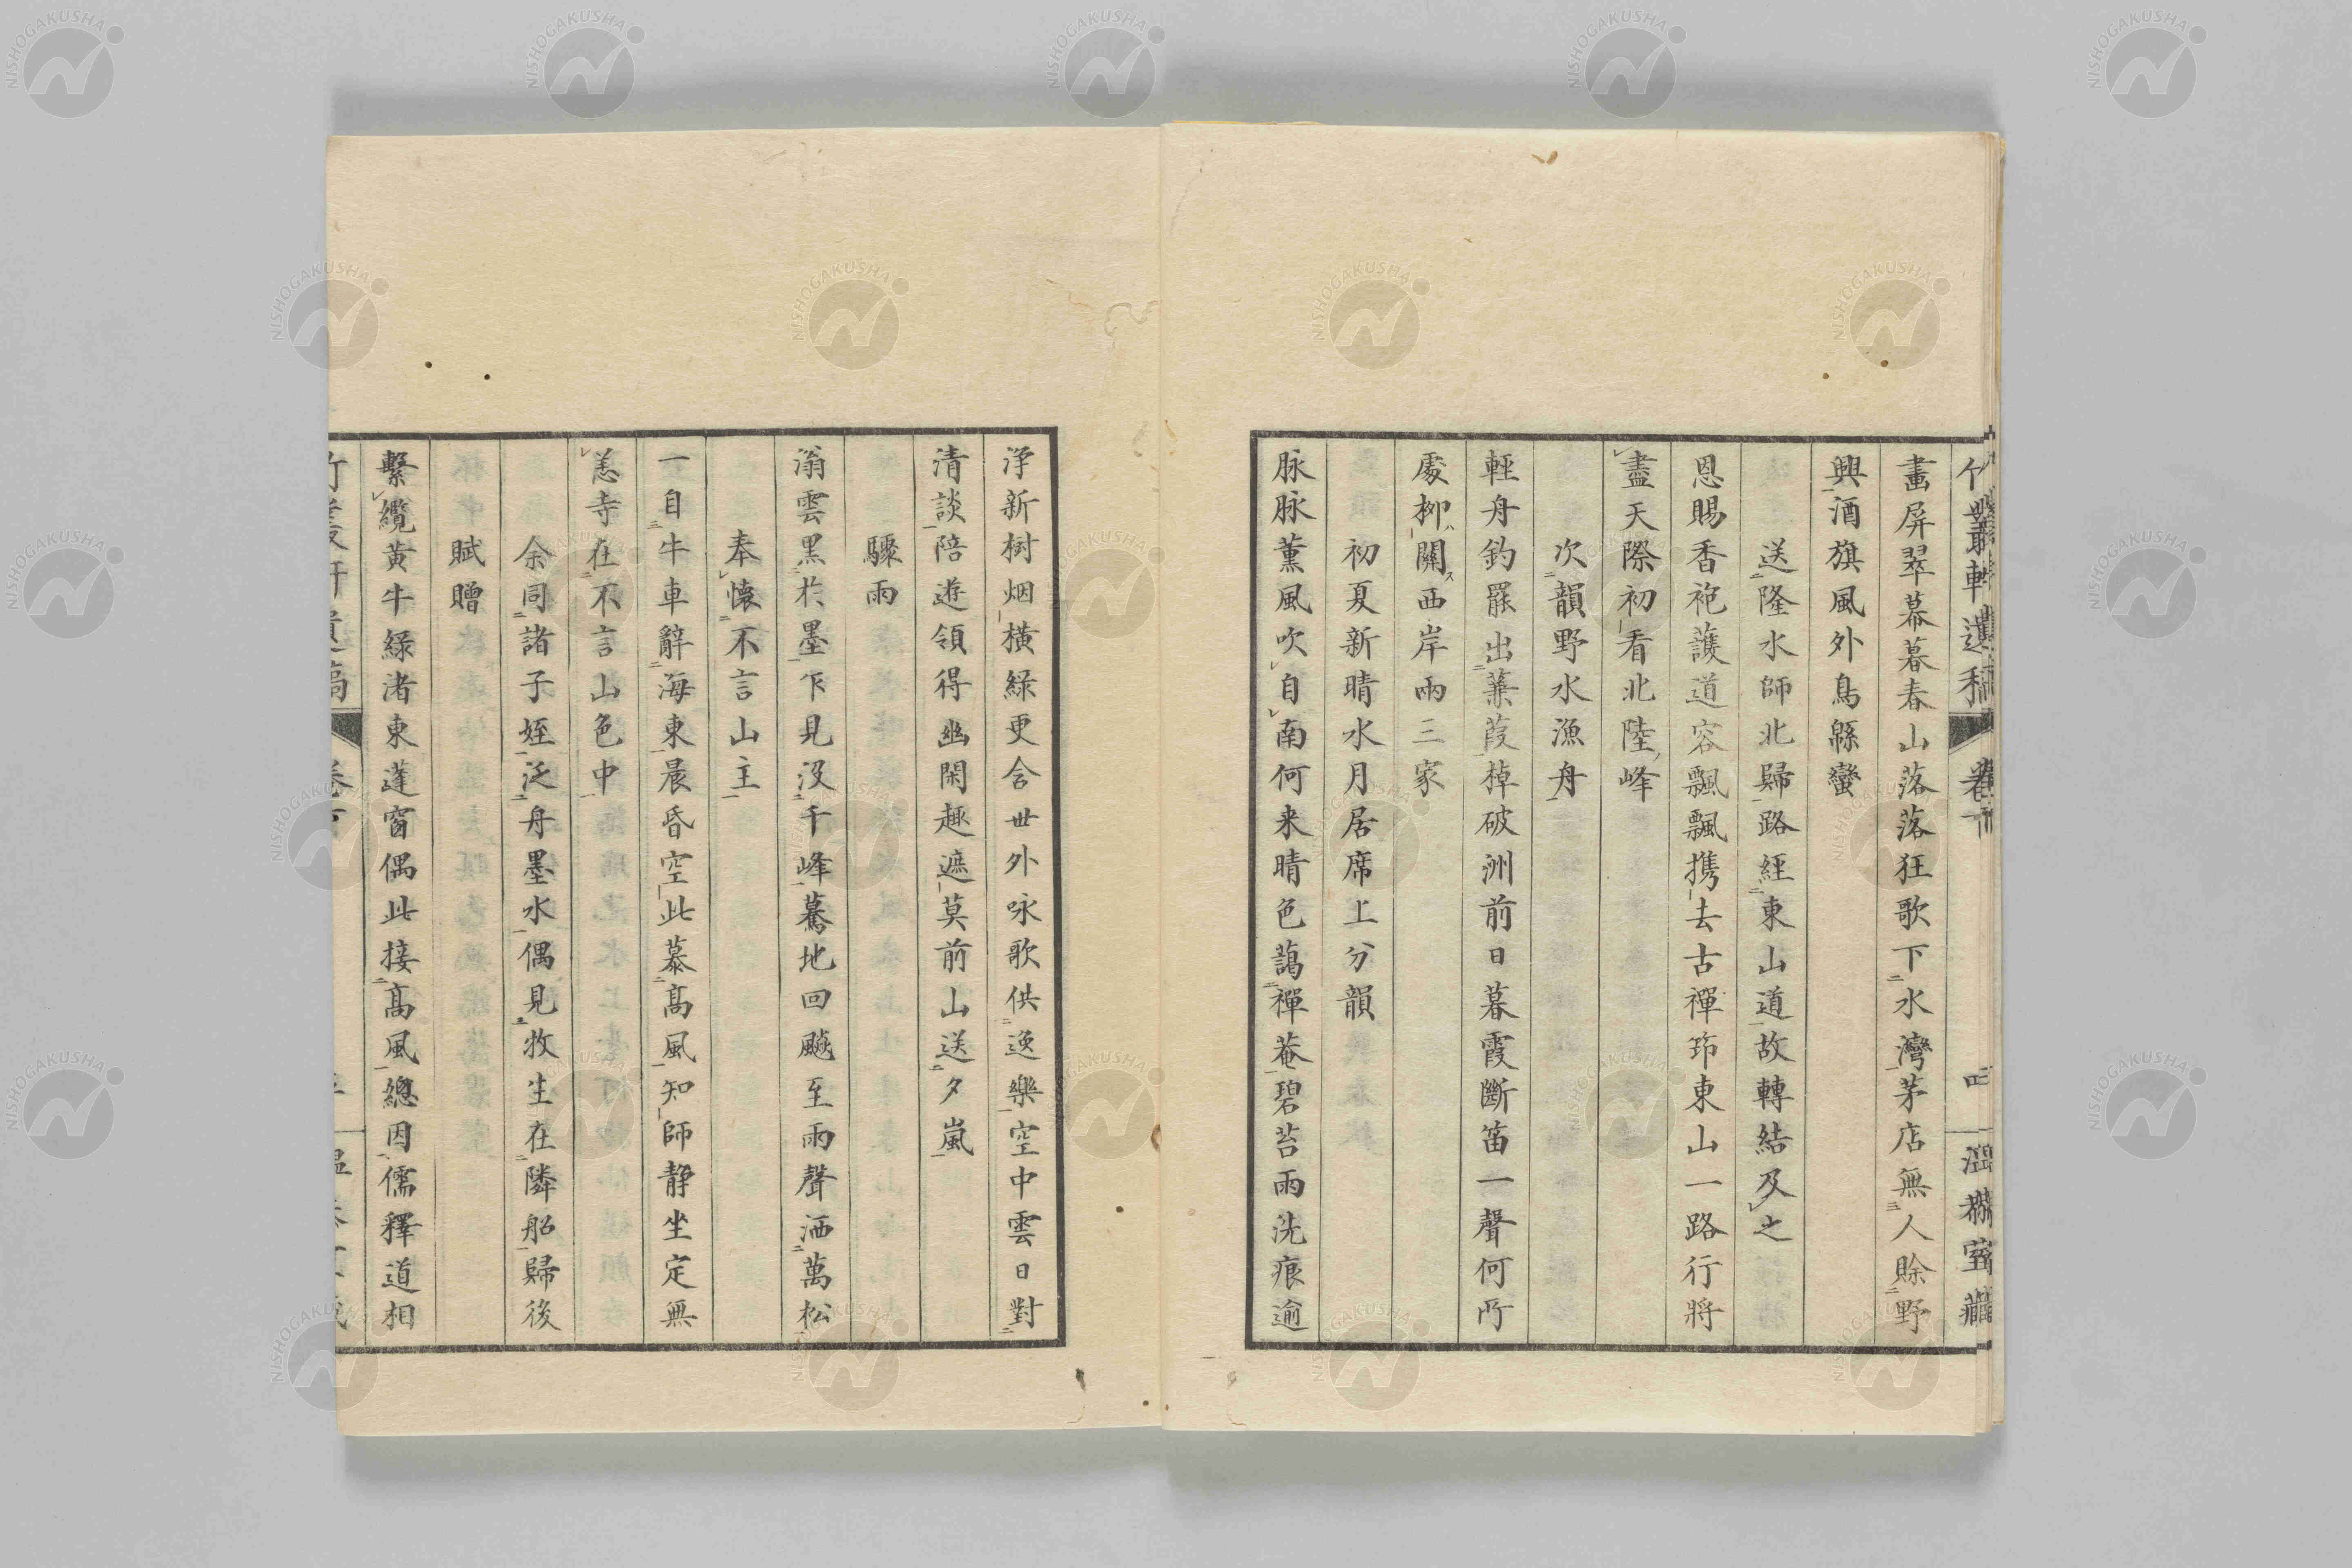 竹叢軒遺稿 卷下 四
畫屏翠幕暮春山落落狂歌下水灣茅店無人賒野
興酒旗風外鳥緜蠻
送隆水師北歸路經東山道故轉結及之
恩賜香袍護道容飄飄携去古禪筇東山一路行將
盡天際初看北陸峰
次韻野水漁舟
輕舟釣罷出蒹葭棹破洲前日暮霞斷笛一聲何所
處柳關西岸兩三家
初夏新晴水月居席上分韻
脉脉薰風吹自南何来晴色藹禪菴碧苔雨洗痕逾
淨新樹烟橫綠更含世外咏歌供逸樂空中雲日對
清談陪遊領得幽閑趣遮莫前山送夕嵐
驟雨
滃雲黑於墨乍見沒千峰驀地回飈至雨聲洒萬松
奉懷不言山主
一自牛車辭海東晨昏空此慕高風知師靜坐定無
恙寺在不言山色中
余同諸子姪泛舟墨水偶見牧生在隣船歸後
賦贈
繫纜黃牛綠渚東蓬窗偶此接高風總因儒釋道相